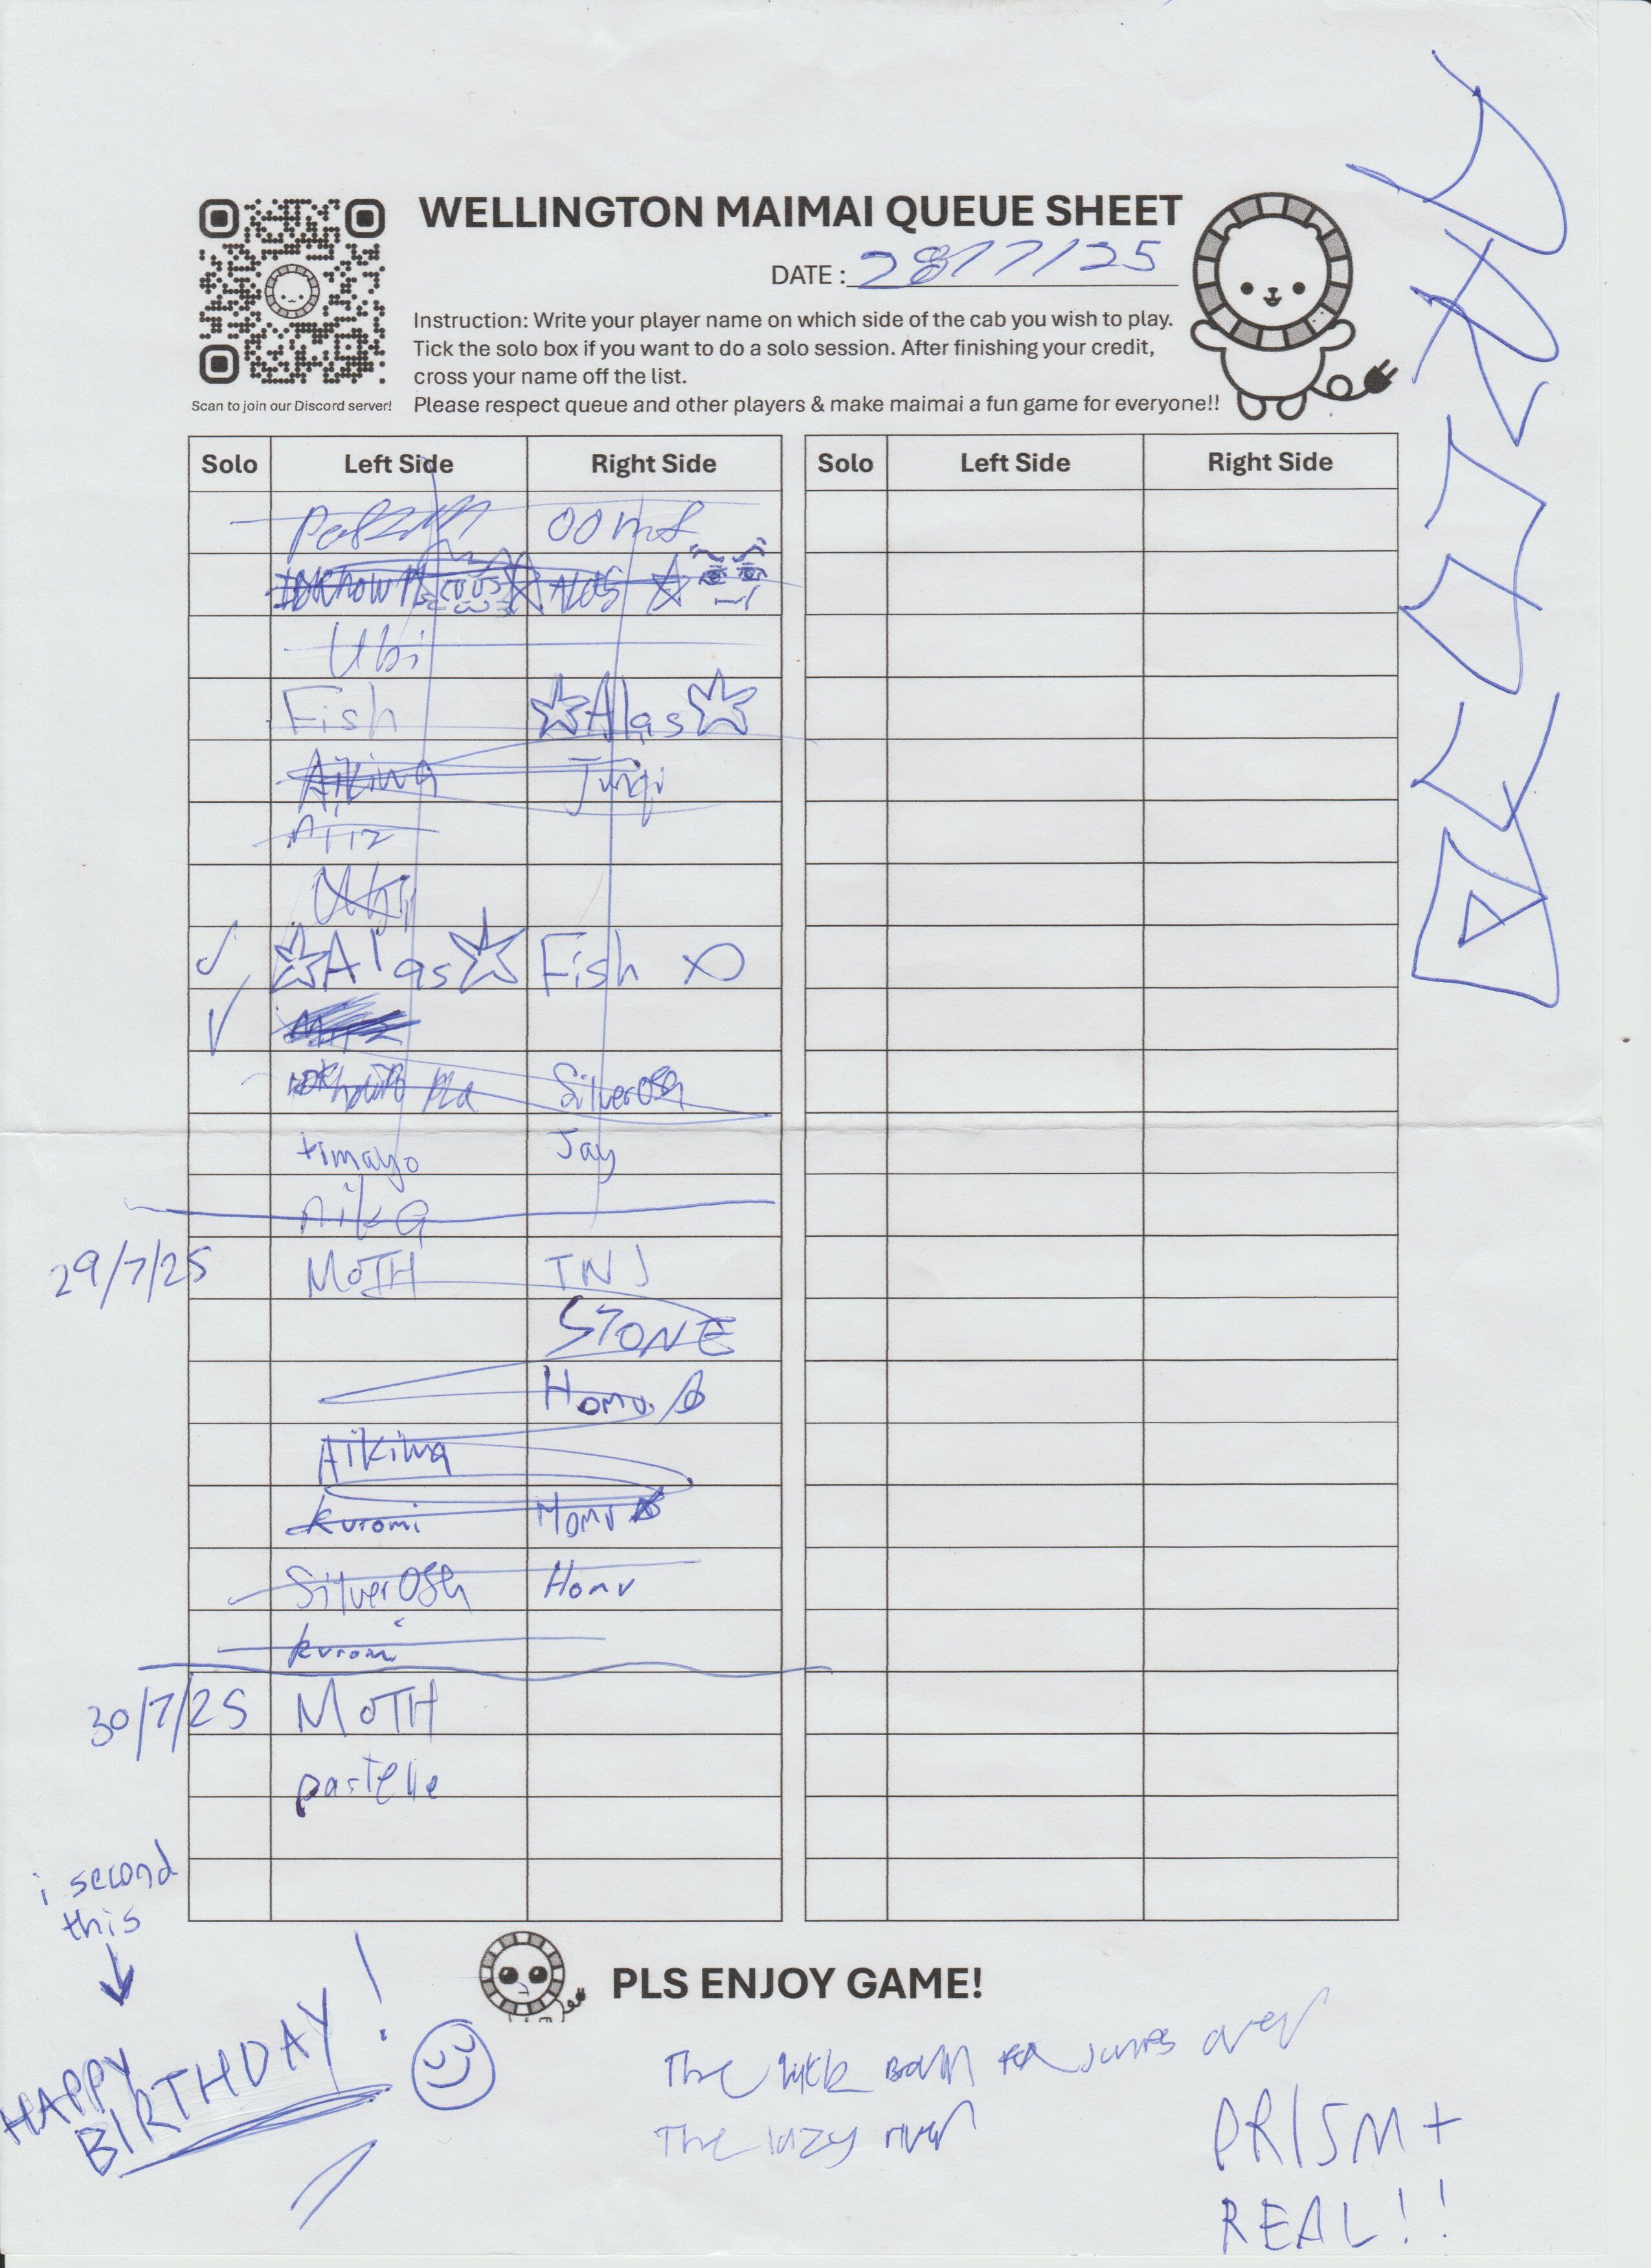 WELLINGTON MAIMAI QUEUE SHEET
DATE: 28/7/25
Instruction: Write your player name on which side of the cab you wish to play.
Tick the solo box if you want to do a solo session. After finishing your credit,
cross your name off the list.
Please respect queue and other players & make maimai a fun game for everyone!!
Scan to join our Discord server!
Solo Left Side Right Side Solo Left Side Right Side
Ubi
Fish ☆Alas☆
Aikiwa Junqi
Ubi
✓ ☆Alas☆ Fish
✓
SilverOSh
timayo Jay
nikG
29/7/25 MOTH TNJ
STONE
Homu
Aikiwa
kuromi Homu
SilverOSh Homu
kuromi
30/7/25 MOTH
pastelle
i second
this
↓
HAPPY
BIRTHDAY!
PLS ENJOY GAME!
The over
The lazy river
PRISM+
REAL!!